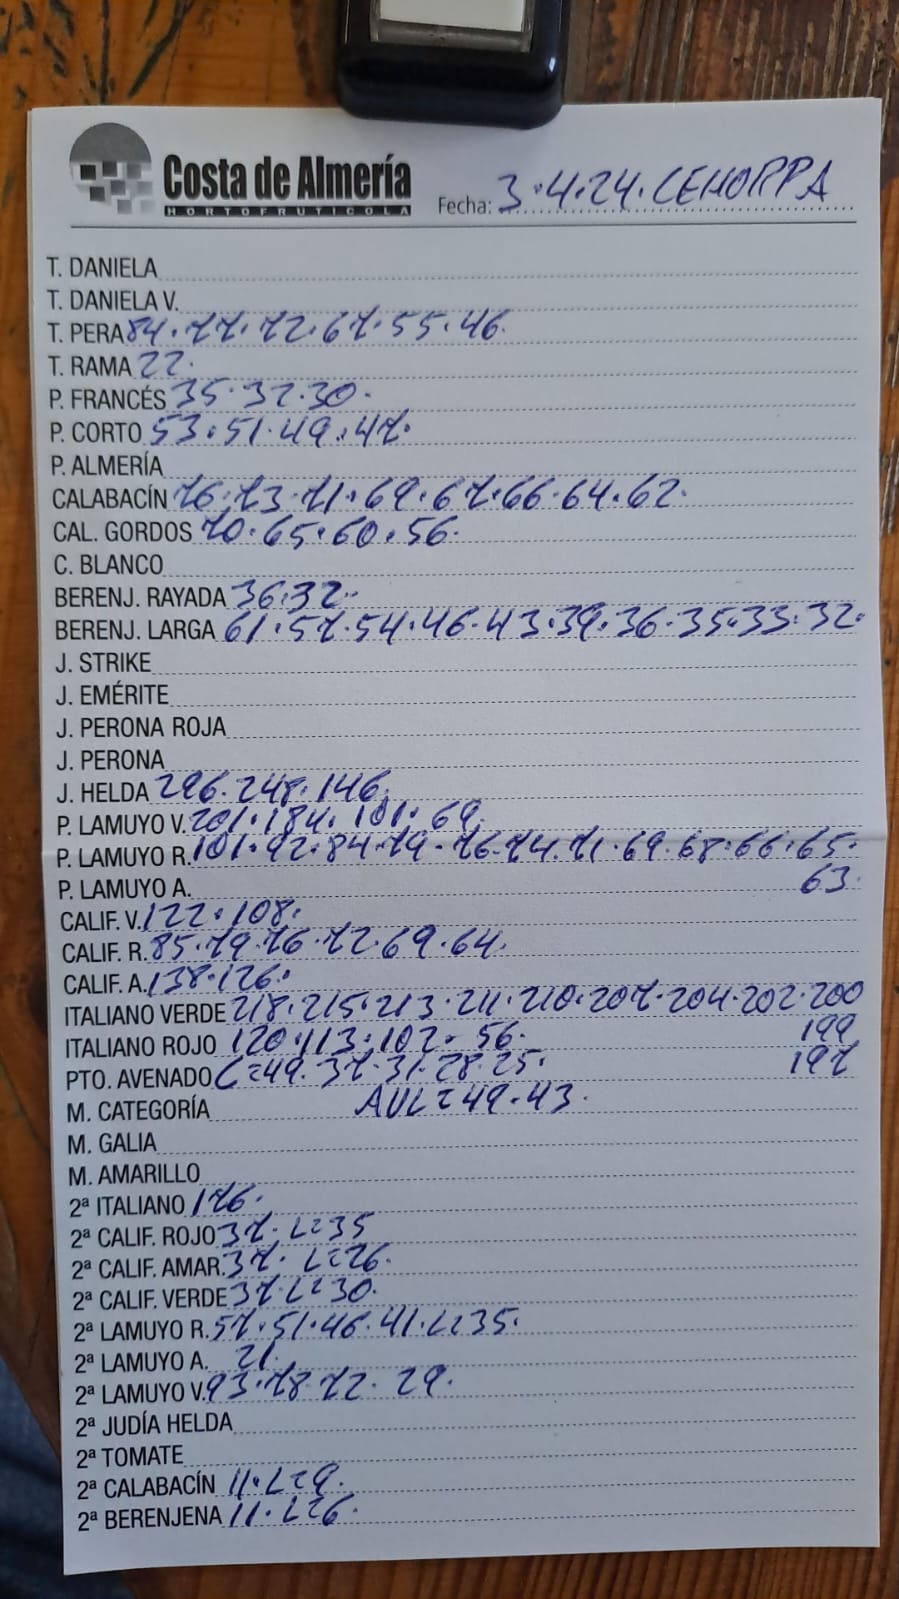 Costa de Almería
HORTOFRUTICOLA
Fecha: 3.4.24. CEHORPA
T. DANIELA
T. DANIELA V.
T. PERA 84. 77. 72. 67. 55. 46.
T. RAMA 22.
P. FRANCÉS 35. 32. 30.
P. CORTO 53. 51. 49. 47.
P. ALMERÍA
CALABACÍN 76. 73. 71. 69. 67. 66. 64. 62.
CAL. GORDOS 70. 65. 60. 56.
C. BLANCO
BERENJ. RAYADA 36. 32.
BERENJ. LARGA 61. 57. 54. 46. 43. 39. 36. 35. 33. 32.
J. STRIKE
J. EMÉRITE
J. PERONA ROJA
J. PERONA
J. HELDA 296. 248. 146.
P. LAMUYO V. 201. 184. 101. 69.
P. LAMUYO R. 101. 92. 84. 79. 76. 74. 71. 69. 68. 66. 65.
P. LAMUYO A. 63.
CALIF. V. 122. 108.
CALIF. R. 85. 79. 76. 72. 69. 64.
CALIF. A. 138. 126.
ITALIANO VERDE 218. 215. 213. 211. 210. 207. 204. 202. 200
ITALIANO ROJO 120. 113. 102. 56. 199
PTO. AVENADO C=49. 37. 31. 28. 25. 197
M. CATEGORÍA AVL=49. 43.
M. GALIA
M. AMARILLO
2ª ITALIANO 176.
2ª CALIF. ROJO 37. L=35
2ª CALIF. AMAR. 37. L=26.
2ª CALIF. VERDE 37. L=30.
2ª LAMUYO R. 57. 51. 46. 41. L=35.
2ª LAMUYO A. 21.
2ª LAMUYO V. 93. 78. 72. 29.
2ª JUDÍA HELDA
2ª TOMATE
2ª CALABACÍN 11. L=9.
2ª BERENJENA 11. L=6.